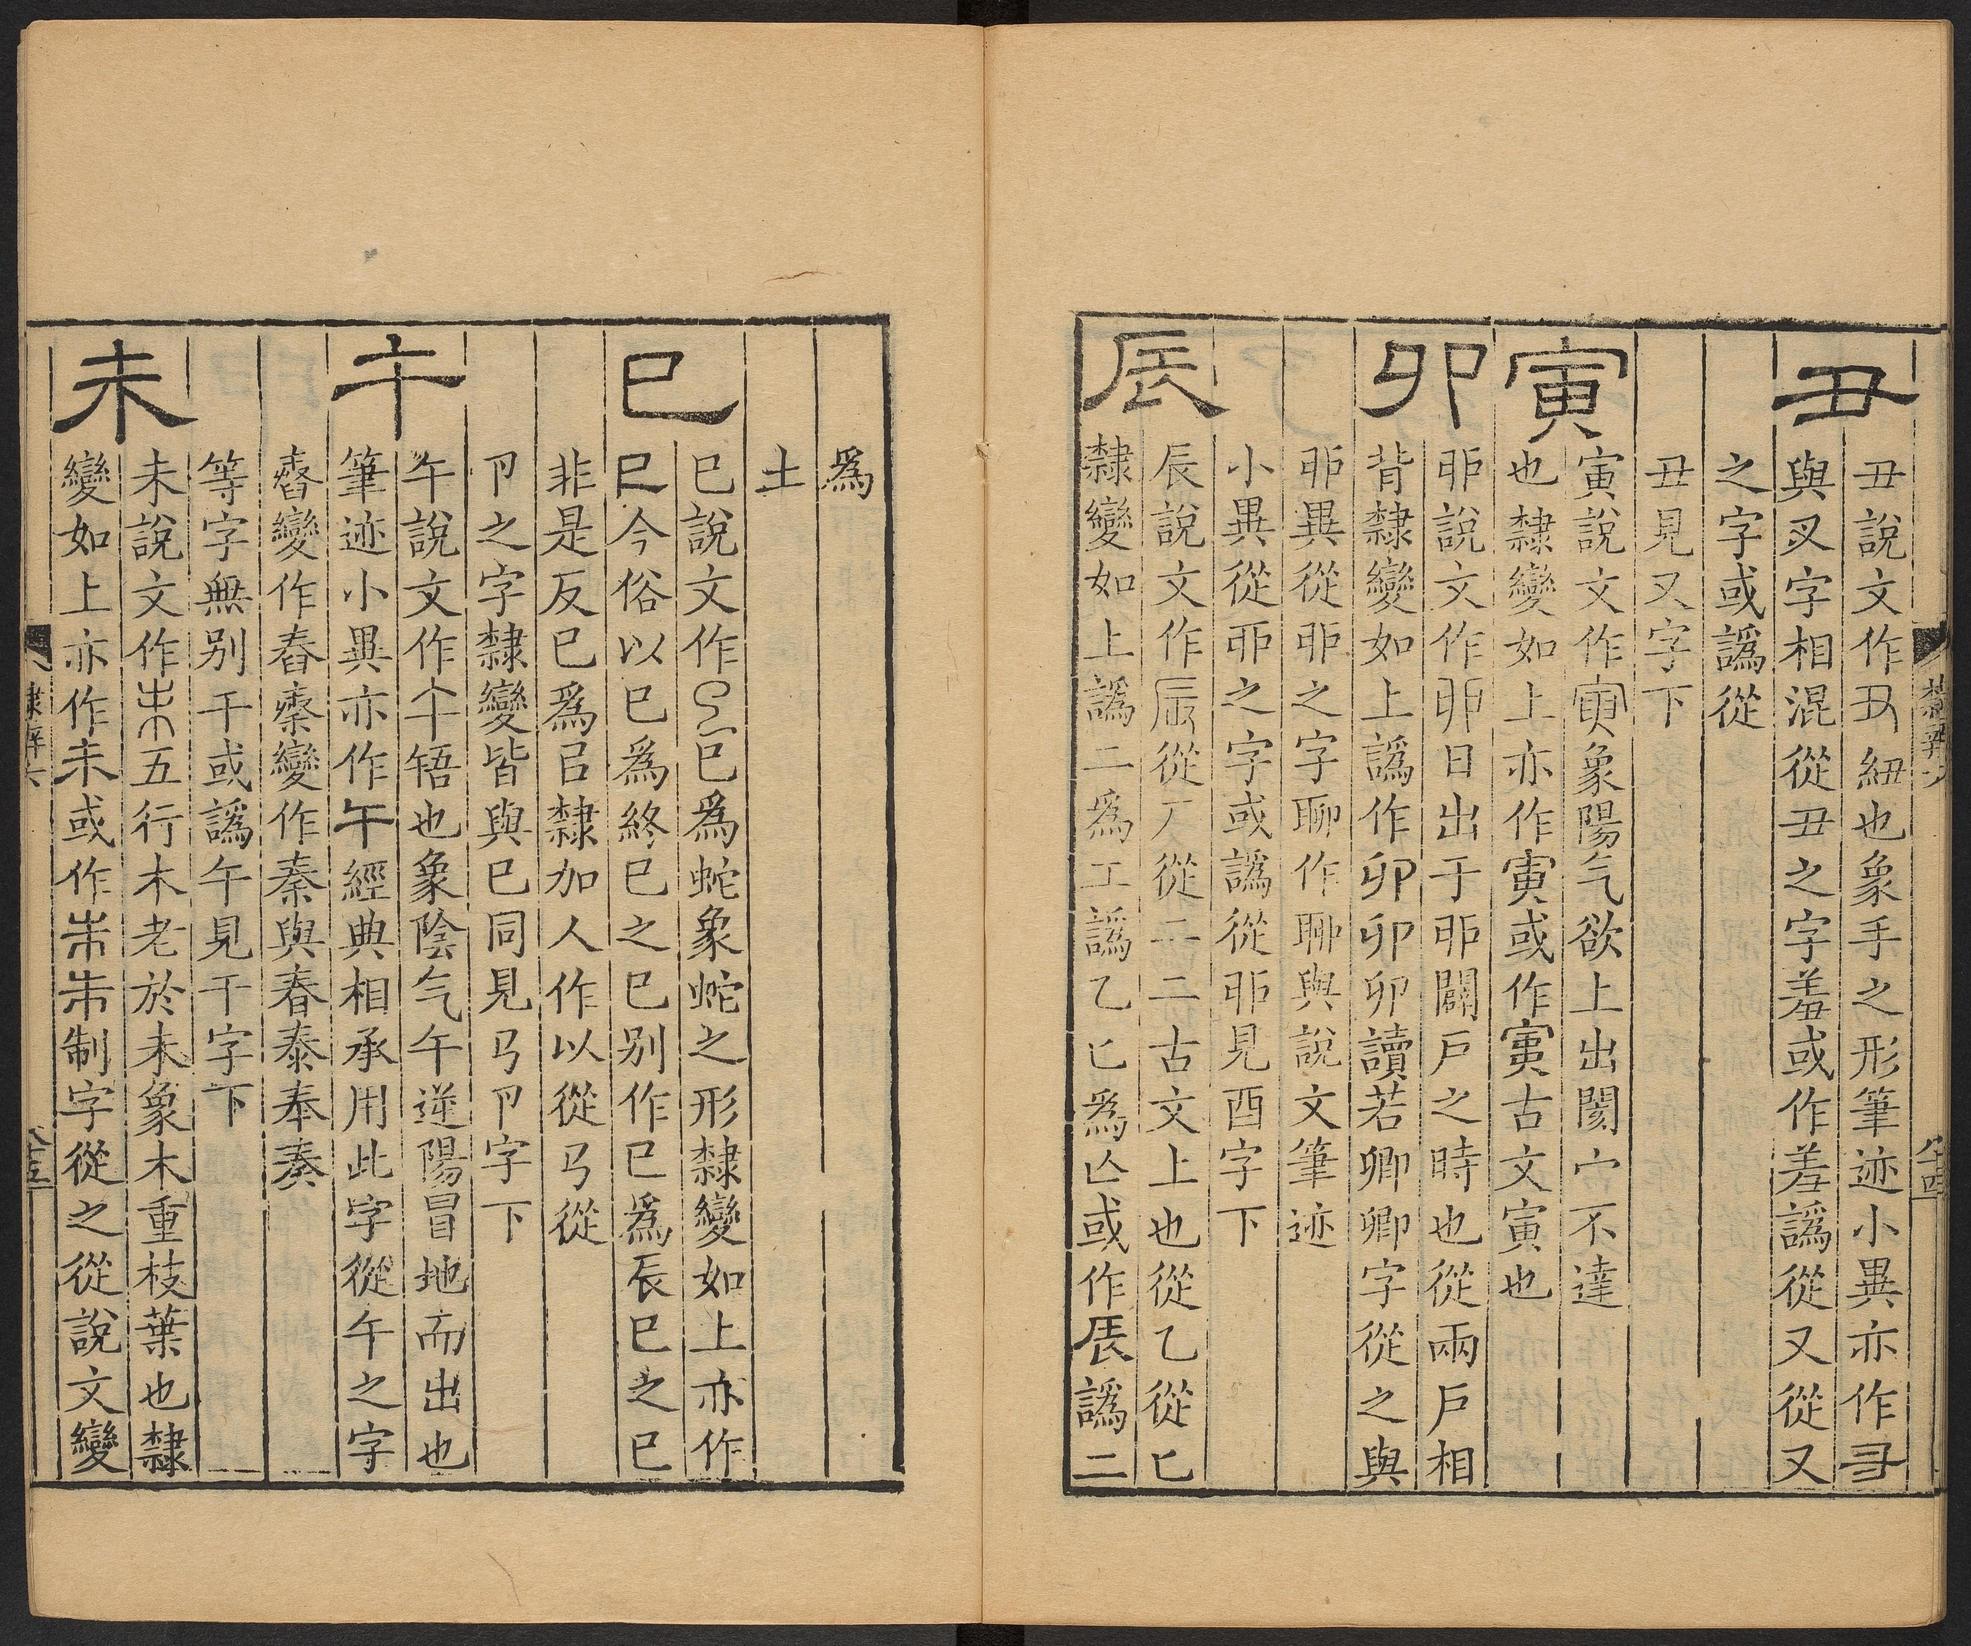 丑
丑說文作丑紐也象手之形筆迹小異亦作彐
與㕚字相混從丑之字羞或作羞譌從又從又
之字或譌從
丑見又字下
寅
寅說文作寅象陽气欲上出閡宀不達
也隸變如上亦作寅或作寅古文寅也
卯
戼說文作戼日出于戼闢戸之時也從兩戸相
背隸變如上譌作卯卯卯讀若卿卿字從之與
戼異從戼之字聊作聊與說文筆迹
小異從丣之字或譌從戼見酉字下
辰
辰說文作辰從厂從二二古文上也從乙從匕
隸變如上譌二爲工譌乙匕爲亾或作辰譌二
爲
土
巳
巳說文作巳爲蛇象蛇之形隸變如上亦作
巳今俗以巳爲終巳之巳别作已爲辰巳之巳
非是反巳爲㠯隸加人作以從㔾從
卩之字隸變皆與巳同見㔾卩字下
午
午說文作午啎也象陰气午逆陽冒地而出也
筆迹小異亦作午經典相承用此字從午之字
舂變作舂秦變作秦與春泰奉奏
等字無别干或譌午見干字下
未
未說文作未五行木老於未象木重枝葉也隸
變如上亦作未或作制字從之從說文變
隸辨六
八十四
隸辨六
八十五